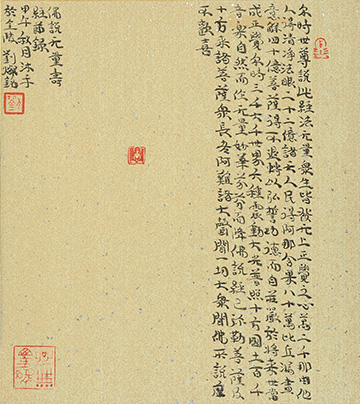 尔時世尊說此經法无量衆生皆發无上正覺之心萬二千那由他
人得清淨法眼二十二億諸天人民得阿那含果八十萬比丘漏盡
意解四十億菩薩得不退轉以弘誓功德而自莊嚴於將來世當
成正覺尔時三千大千世界六種震動大光普照十方國土百千
音樂自然而作无量妙華芬芬而降佛說經已弥勒菩薩及
十方來諸菩薩衆長老阿難諸大聲聞一切大衆聞佛所說靡
不歡喜
佛說无量壽
經節錄
甲午秋月沐手
於金陵劉燦銘